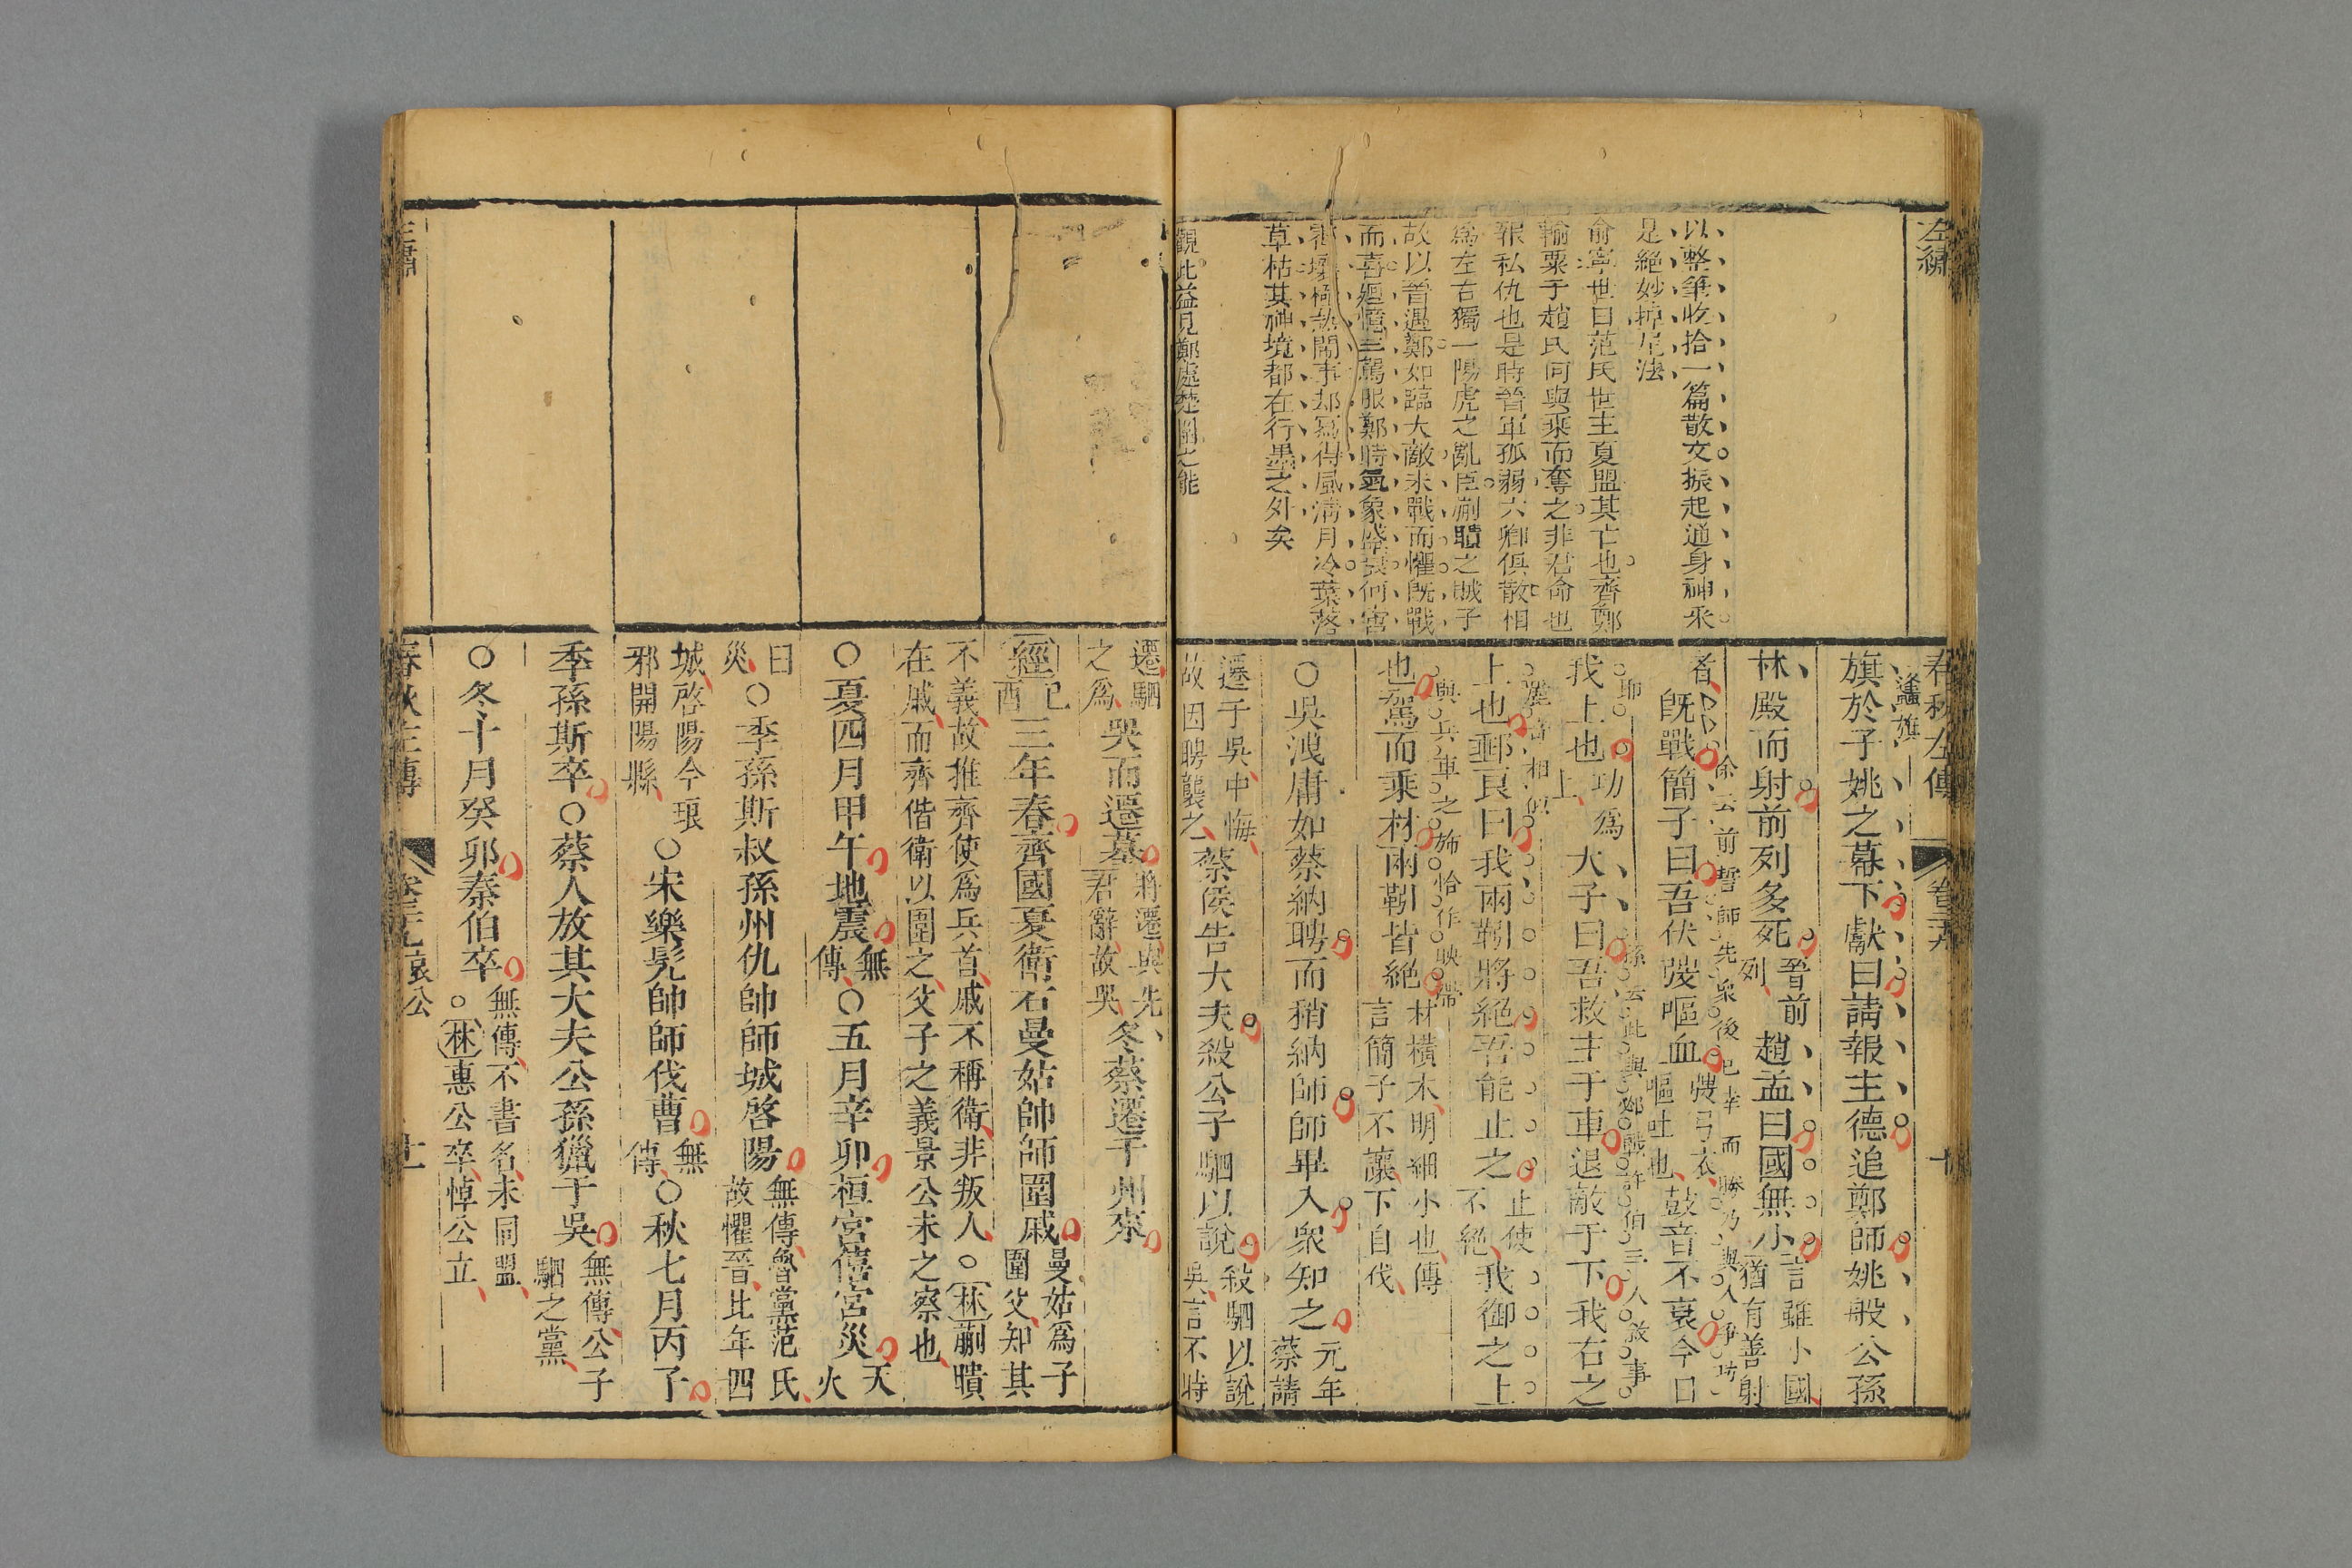 左繡
以整筆收拾一篇散文振起通身神采
是絕妙掉尾法
俞寧世曰范氏世主夏盟其亡也齊鄭
輸粟于趙氏何與乘而奪之非君命也
報私仇也是時晉軍孤弱六卿俱散相
為左右獨一陽虎之亂臣蒯聵之賊子
故以晉遇鄭如臨大敵未戰而懼既戰
而喜廻憶三駕服鄭時氣象盛衰何害
草枯其神境都在行墨之外矣
觀此益見鄭處楚國之能
春秋左傳
卷二十九
十
蠭旗
旗於子姚之幕下獻曰請報主德追鄭師姚般公孫
林殿而射前列多死晉前列趙孟曰國無小言雖小國猶有善射
者既戰簡子曰吾伏弢嘔血弢弓衣嘔吐也鼓音不衰今日
余云前誓師先衆後己幸而勝乃與人爭功
耶
我上也功為上大子曰吾救主于車退敵于下我右之
孫云此與鄢戰許伯三人敘事
上也郵良曰我兩靷將絕吾能止之止使不絕我御之上
與兵車之旆恰作映帶
也駕而乘材兩靷皆絕材橫木明細小也傳言簡子不讓下自伐
○吳洩庸如蔡納聘而稍納師師畢入衆知之元年蔡請
遷于吳中悔故因聘襲之蔡侯告大夫殺公子駟以說殺駟以說吳言不時
遷駟之為哭而遷墓將遷與先君辭故哭冬蔡遷于州來
經己酉三年春齊國夏衛石曼姑帥師圍戚曼姑為子圍父知其
不義故推齊使為兵首戚不稱衛非叛人○林蒯聵在戚而齊偕衛以圍之父子之義景公未之察也
○夏四月甲午地震無傳○五月辛卯桓宮僖宮災天火
曰災○季孫斯叔孫州仇帥師城啓陽無傳魯黨范氏故懼晉比年四
城啓陽今琅邪開陽縣○宋樂髡帥師伐曹無傳○秋七月丙子
季孫斯卒○蔡人放其大夫公孫獵于吳無傳公子駟之黨
○冬十月癸卯秦伯卒無傳不書名未同盟○林惠公卒悼公立
春秋左傳
哀公
十一